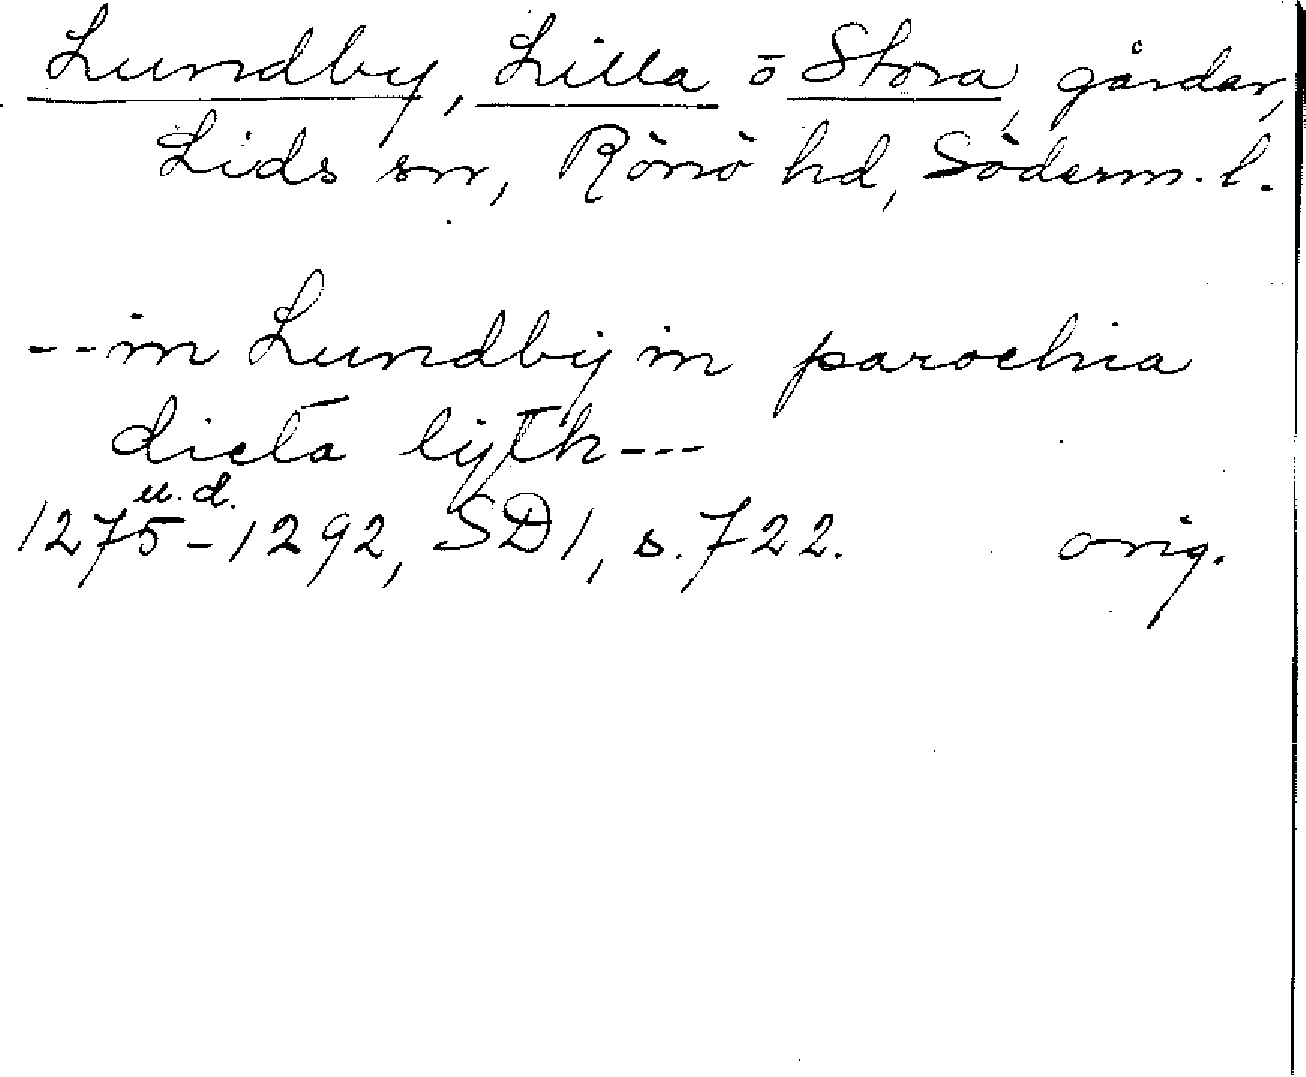 Lundby, Lilla o Stora, gårdar,
Lids sn, Rönö hd, Söderm. l.
--in Lundby in parochia
dicta lyth---
u.d.
1275-1292, SD1, s.722. orig.